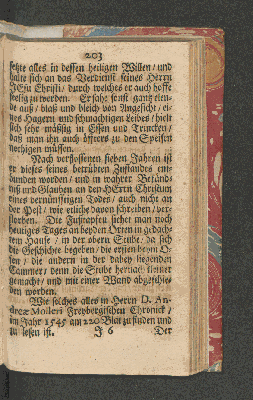 203
setzte alles in dessen heiligen Willen/ und
halte sich an das Verdienst seines Herrn
JEsu Christi/ durch welches er auch hoffe
seelig zu werden. Er sahe sonst gantz elen-
de auß/ blaß und bleich von Angesicht/ ei-
nes Hagern und schmachtigen Leibes/ hielt
sich sehr mässig in Essen und Trincken/
daß man ihn auch öffters zu den Speisen
nöthigen müssen.
Nach verflossenen sieben Jahren ist
er dieses seines betrübten Zustandes ent-
bunden worden/ und in wahrer Bestän-
diß und Glauben an den HErrn Christum
eines vernünfftigen Todes/ auch nicht an
der Pest/ wie etliche davon schreiben/ ver-
storben. Die Fußtapfen siehet man noch
heutiges Tages an beyden Orten in gedach-
tem Hause/ in der obern Stube/ da sich
die Geschichte begeben/ die ersten beym O-
fen/ die andern in der dabey liegenden
Cammer/ denn die Stube hernach kleiner
gemacht/ und mit einer Wand abgeschie-
den worden.
Wie solches alles in Herrn D. An-
dreæ Molleri Freybergischen Chronick/
im Jahr 1545 am 220 Blat zu finden und
zu lesen ist.
J 6 Der